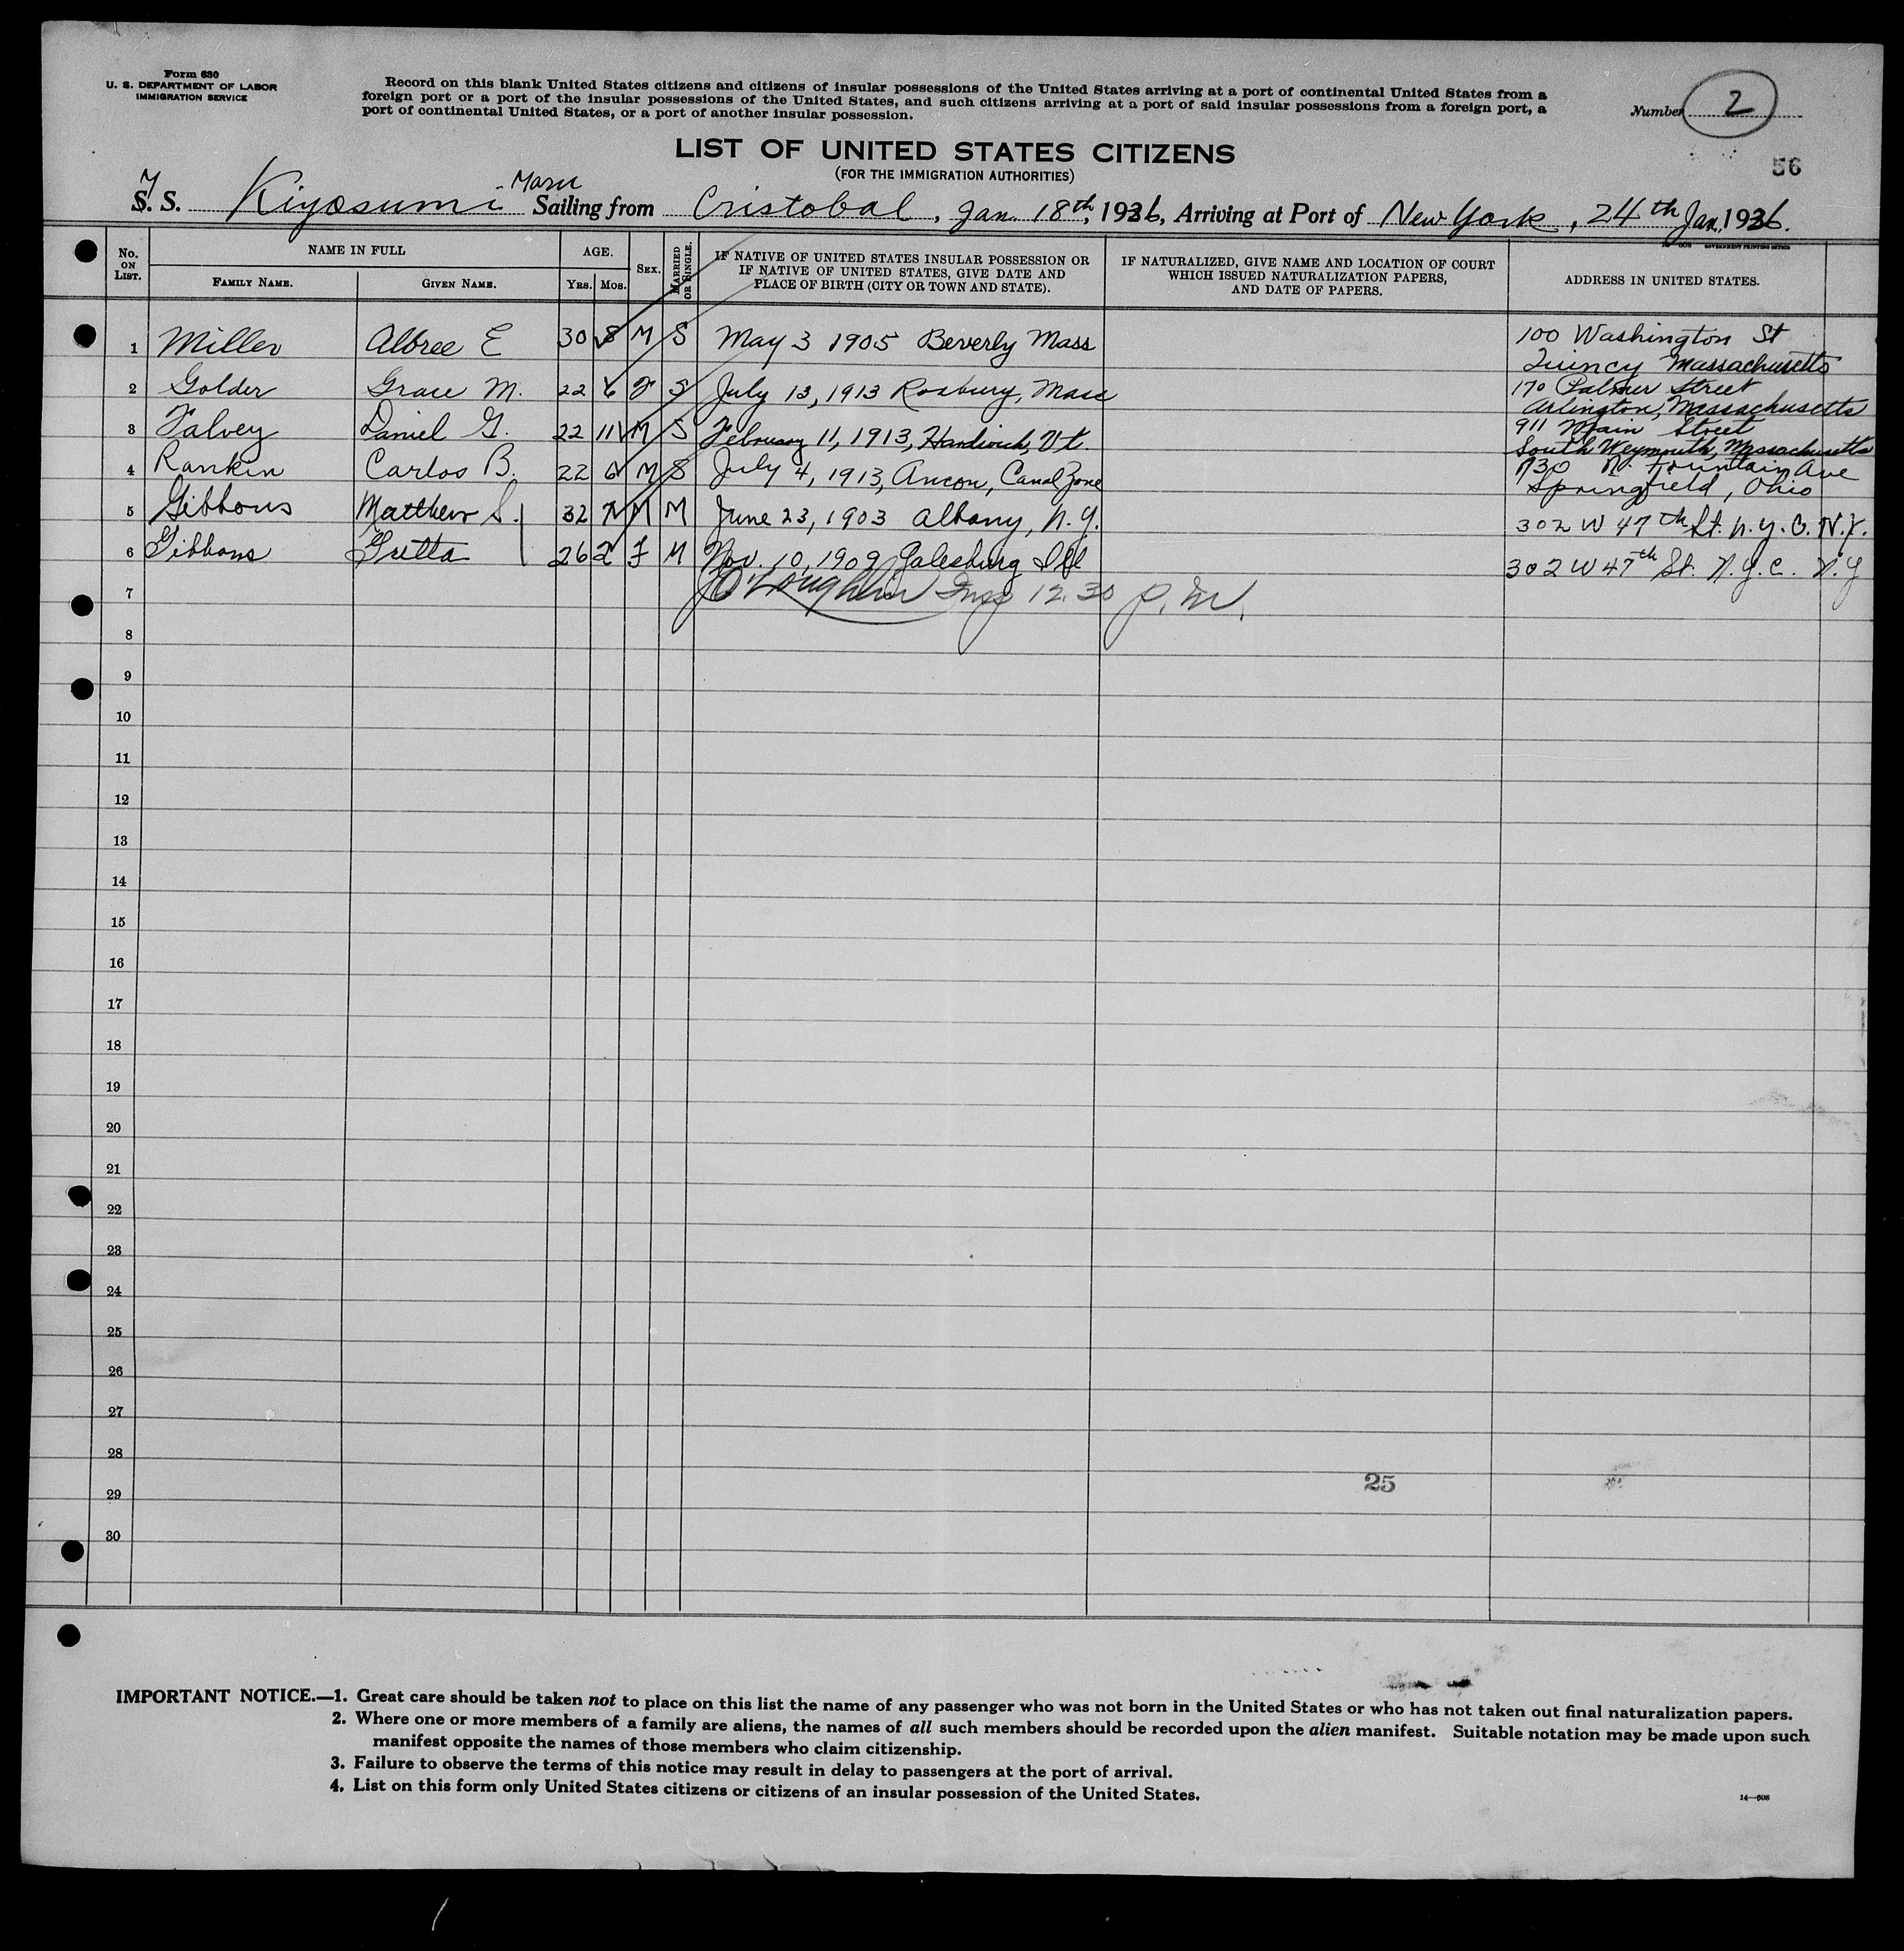 Form 630
U. S. DEPARTMENT OF LABOR
IMMIGRATION SERVICE
Record on this blank United States citizens and citizens of insular possessions of the United States arriving at a port of continental United States from a
foreign port or a port of the insular possessions of the United States, and such citizens arriving at a port of said insular possessions from a foreign port, a
port of continental United States, or a port of another insular possession.
Number 2
LIST OF UNITED STATES CITIZENS
(FOR THE IMMIGRATION AUTHORITIES)
56
S. S. Kiyosumi Maru Sailing from Cristobal, Jan. 18th, 1936, Arriving at Port of New York, 24th Jan, 1936.
GOVERNMENT PRINTING OFFICE
No. ON LIST. NAME IN FULL FAMILY NAME. GIVEN NAME. AGE. YRS. MOS. SEX. MARRIED OR SINGLE. IF NATIVE OF UNITED STATES INSULAR POSSESSION OR IF NATIVE OF UNITED STATES, GIVE DATE AND PLACE OF BIRTH (CITY OR TOWN AND STATE). IF NATURALIZED, GIVE NAME AND LOCATION OF COURT WHICH ISSUED NATURALIZATION PAPERS, AND DATE OF PAPERS. ADDRESS IN UNITED STATES.
1 Miller Albree E 30 8 M S May 3 1905 Beverly Mass 100 Washington St
Quincy Massachusetts
2 Golder Grace M. 22 6 F S July 13, 1913 Roxbury, Mass 170 Palmer Street
Arlington, Massachusetts
3 Falvey Daniel G. 22 11 M S February 11, 1913, Hardwick, Vt. 911 Main Street
South Weymouth, Massachusetts
4 Rankin Carlos B. 22 6 M S July 4, 1913, Ancon, Canal Zone 730 N. Fountain Ave
Springfield, Ohio
5 Gibbons Matthew S. 32 7 M M June 23, 1903 Albany, N.Y. 302 W 47th St. N.Y.C. N.Y.
6 Gibbons Gretta 26 2 F M Nov. 10, 1909 Galesburg Ill 302 W 47th St. N.Y.C. N.Y
7 O'Loughlin Insp 12.30 P.M.
8
9
10
11
12
13
14
15
16
17
18
19
20
21
22
23
24
25
26
27
28
25
29
30
IMPORTANT NOTICE.—1. Great care should be taken not to place on this list the name of any passenger who was not born in the United States or who has not taken out final naturalization papers.
2. Where one or more members of a family are aliens, the names of all such members should be recorded upon the alien manifest. Suitable notation may be made upon such
manifest opposite the names of those members who claim citizenship.
3. Failure to observe the terms of this notice may result in delay to passengers at the port of arrival.
4. List on this form only United States citizens or citizens of an insular possession of the United States.